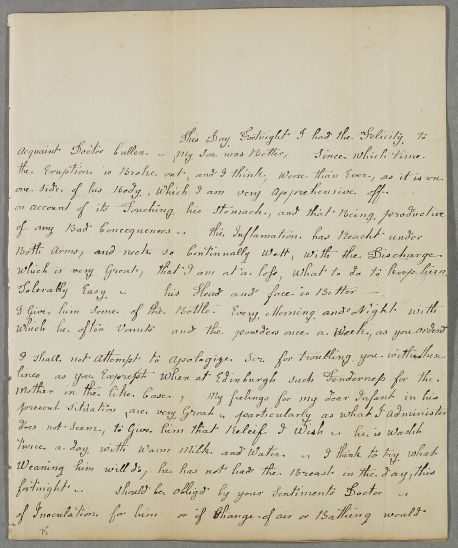 This Day Fortnight I had the Felicity, to
Acquaint Doctor Cullen .. My Son was Better, Since which time
the Eruption is Broke out, and I think, Worse than Ever, as it is on
one side of his Body, Which I am very Apprehensive off.
on account of its Touching his Stomach, and that Being productive
of any Bad Concequences .. the Inflamation has Reacht under
Both Arms, and neck so Continually Wett, with the Discharge
which is very Great, that I am at a loss, what to do to keep him
Tolerably Easy .. his Head and face is Better
I Give him some of the Bottle Every Morning and Night with
which he often Vomits and the powders once a Week, as you orderd
I shall not Attempt to Apologize Sir for troubling you with these
lines as you Exprest When at Edinburgh such Tenderness for the
Mother in the like Case, My feelings for my dear Infant in his
present Situation, are very Great .. particularly as what I Administer
does not seem, to Give him that Releif I Wish .. he is Washt
twice a day with Warm Milk and Water .. I think to try what
Weaning him will do, he has not had the Breast in the day, this
fortnight .. Should be Obligd by your Sentiments Doctor ..
of Inoculation for him or if Change of air or Bathing would